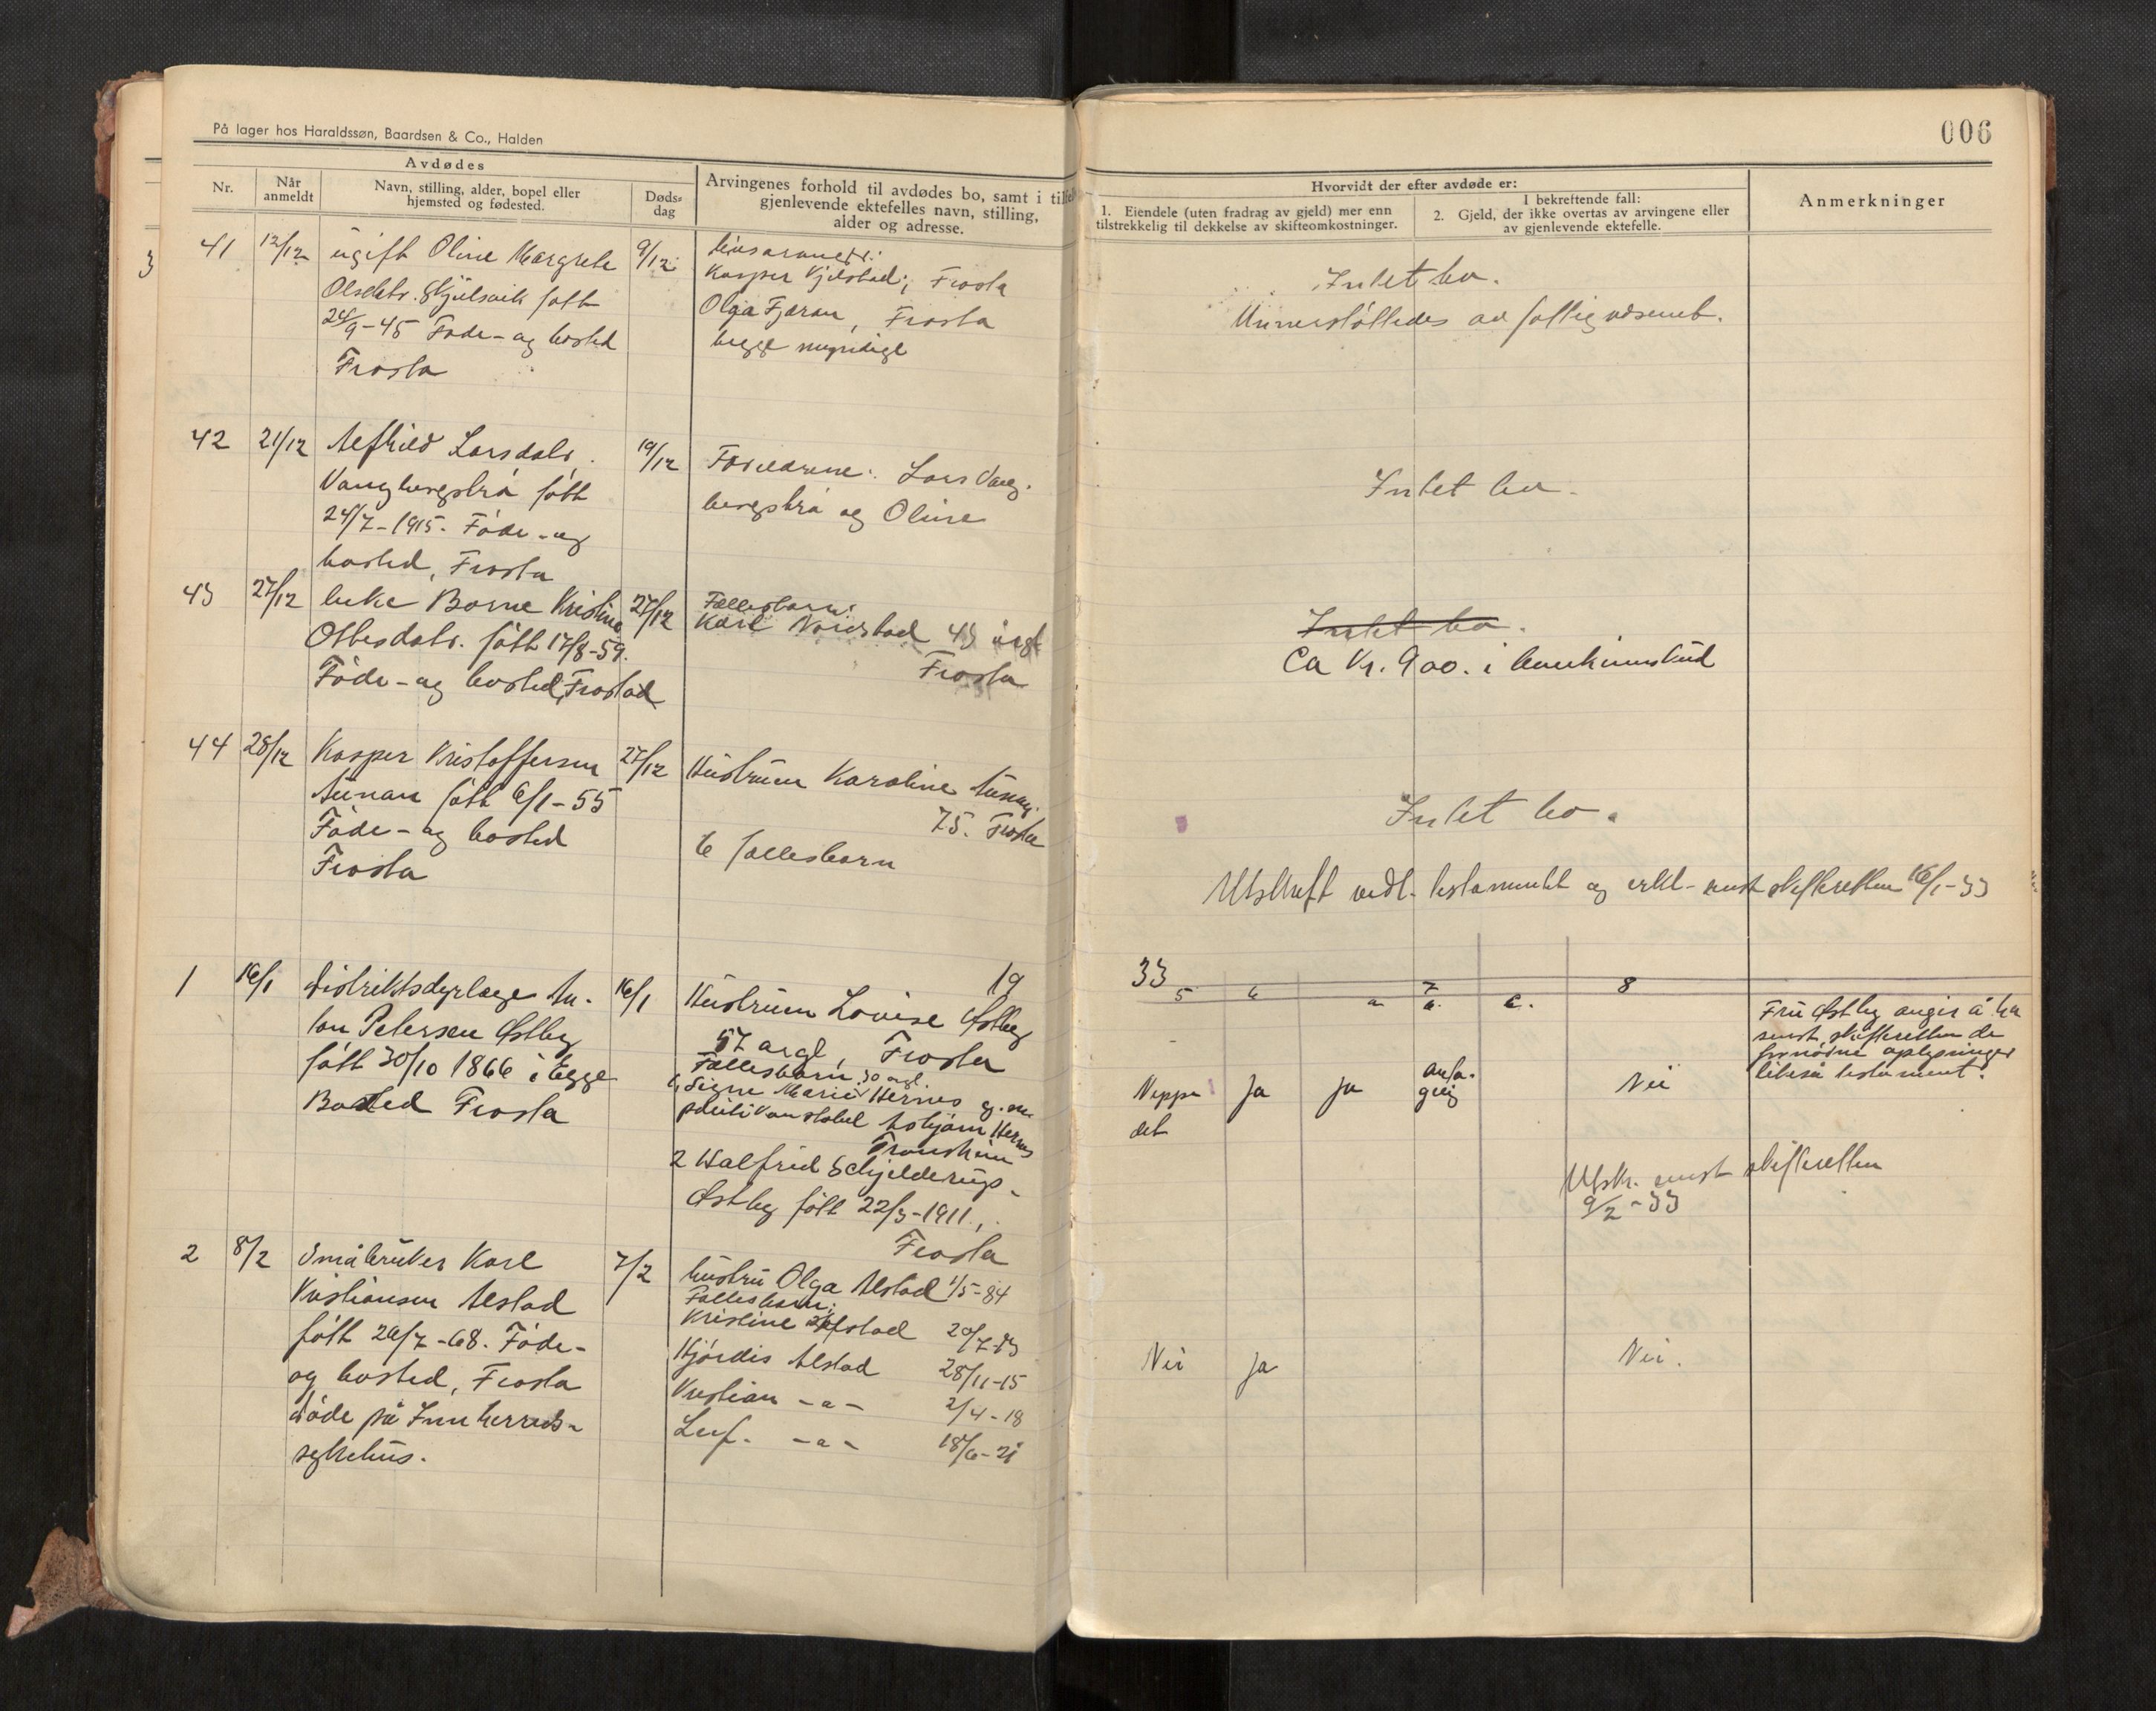 På lager hos Haraldssøn, Baardsen & Co., Halden
Avdødes
Nr.
Når
anmeldt
Navn, stilling, alder, bopel eller
hjemsted og fødested.
Døds-
dag
Arvingenes forhold til avdødes bo, samt i tilfelle
gjenlevende ektefelles navn, stilling,
alder og adresse.
3
41 12/12 ugift Oline Margrete 9/12
Olsdatr. født
24/9-45 Føde- og bosted
Frosta
Kasper Frosta
Olga Fjæran, Frosta
begge myndige
42 21/12 Alfhild Larsdatr. 19/12
Vangbergstrå født
24/7-1915. Føde- og
bosted, Frosta
Foreldrene: Lars Vang-
bergstrå og Oline
43 27/12 enke Kristine 27/12
Ottesdatr. født 17/8-59.
Føde- og bosted, Frosta
Fællesbarn:
Karl 43 årgl
Frosta
44 28/12 Kasper Kristoffersen 27/12
Aunan født 6/1-55
Føde- og bosted
Frosta
Hustruen Karoline Aunan
75. Frosta
6 fællesbarn
1 16/1 Distriktsdyrlæge An- 16/1
ton Petersen Østby
født 30/10 1866 i Egge
Bosted Frosta
19
Hustruen Lovise Østby
57 årgl, Frosta
Fællesbarn: 30 årgl.
1, Signe Marie Hernes g. m.
politikonstabel Hernes
Tronhjem
2 Walfrid Schjelderup-
Østby født 22/3-1911.,
Frosta
2 8/2 Småbruker Karl 7/2
Kristiansen Alstad
født 26/7-68. Føde-
og bosted, Frosta
døde på Innherreds-
sykehus.
hustru Olga Alstad 1/5-84
Fællesbarn:
Kristine Alstad
Hjørdis Alstad 28/11-15
Kristian -a- 2/4-18
Leif. -a- 18/6-21
006
Hvorvidt der efter avdøde er:
1. Eiendele (uten fradrag av gjeld) mer enn
tilstrekkelig til dekkelse av skifteomkostninger.
I bekreftende fall:
2. Gjeld, der ikke overtas av arvingene eller
av gjenlevende ektefelle.
Anmerkninger
Intet bo.
Understøttedes av fattigvesenet.
Intet bo.
Intet bo.
Ca Kr. 900. i bankinnskud
Intet bo.
Utskrift vedl. testamentet og erkl. sendt skifteretten 16/1-33
33
5 6 a 7 b. c. 8
Neppe
det
Ja
Ja
Nei
Fru Østby angir å ha
sendt skifteretten de
fornødne oplysninger
likeså testament.
Utskr. sendt skifteretten
9/2-33
Nei Ja Nei.